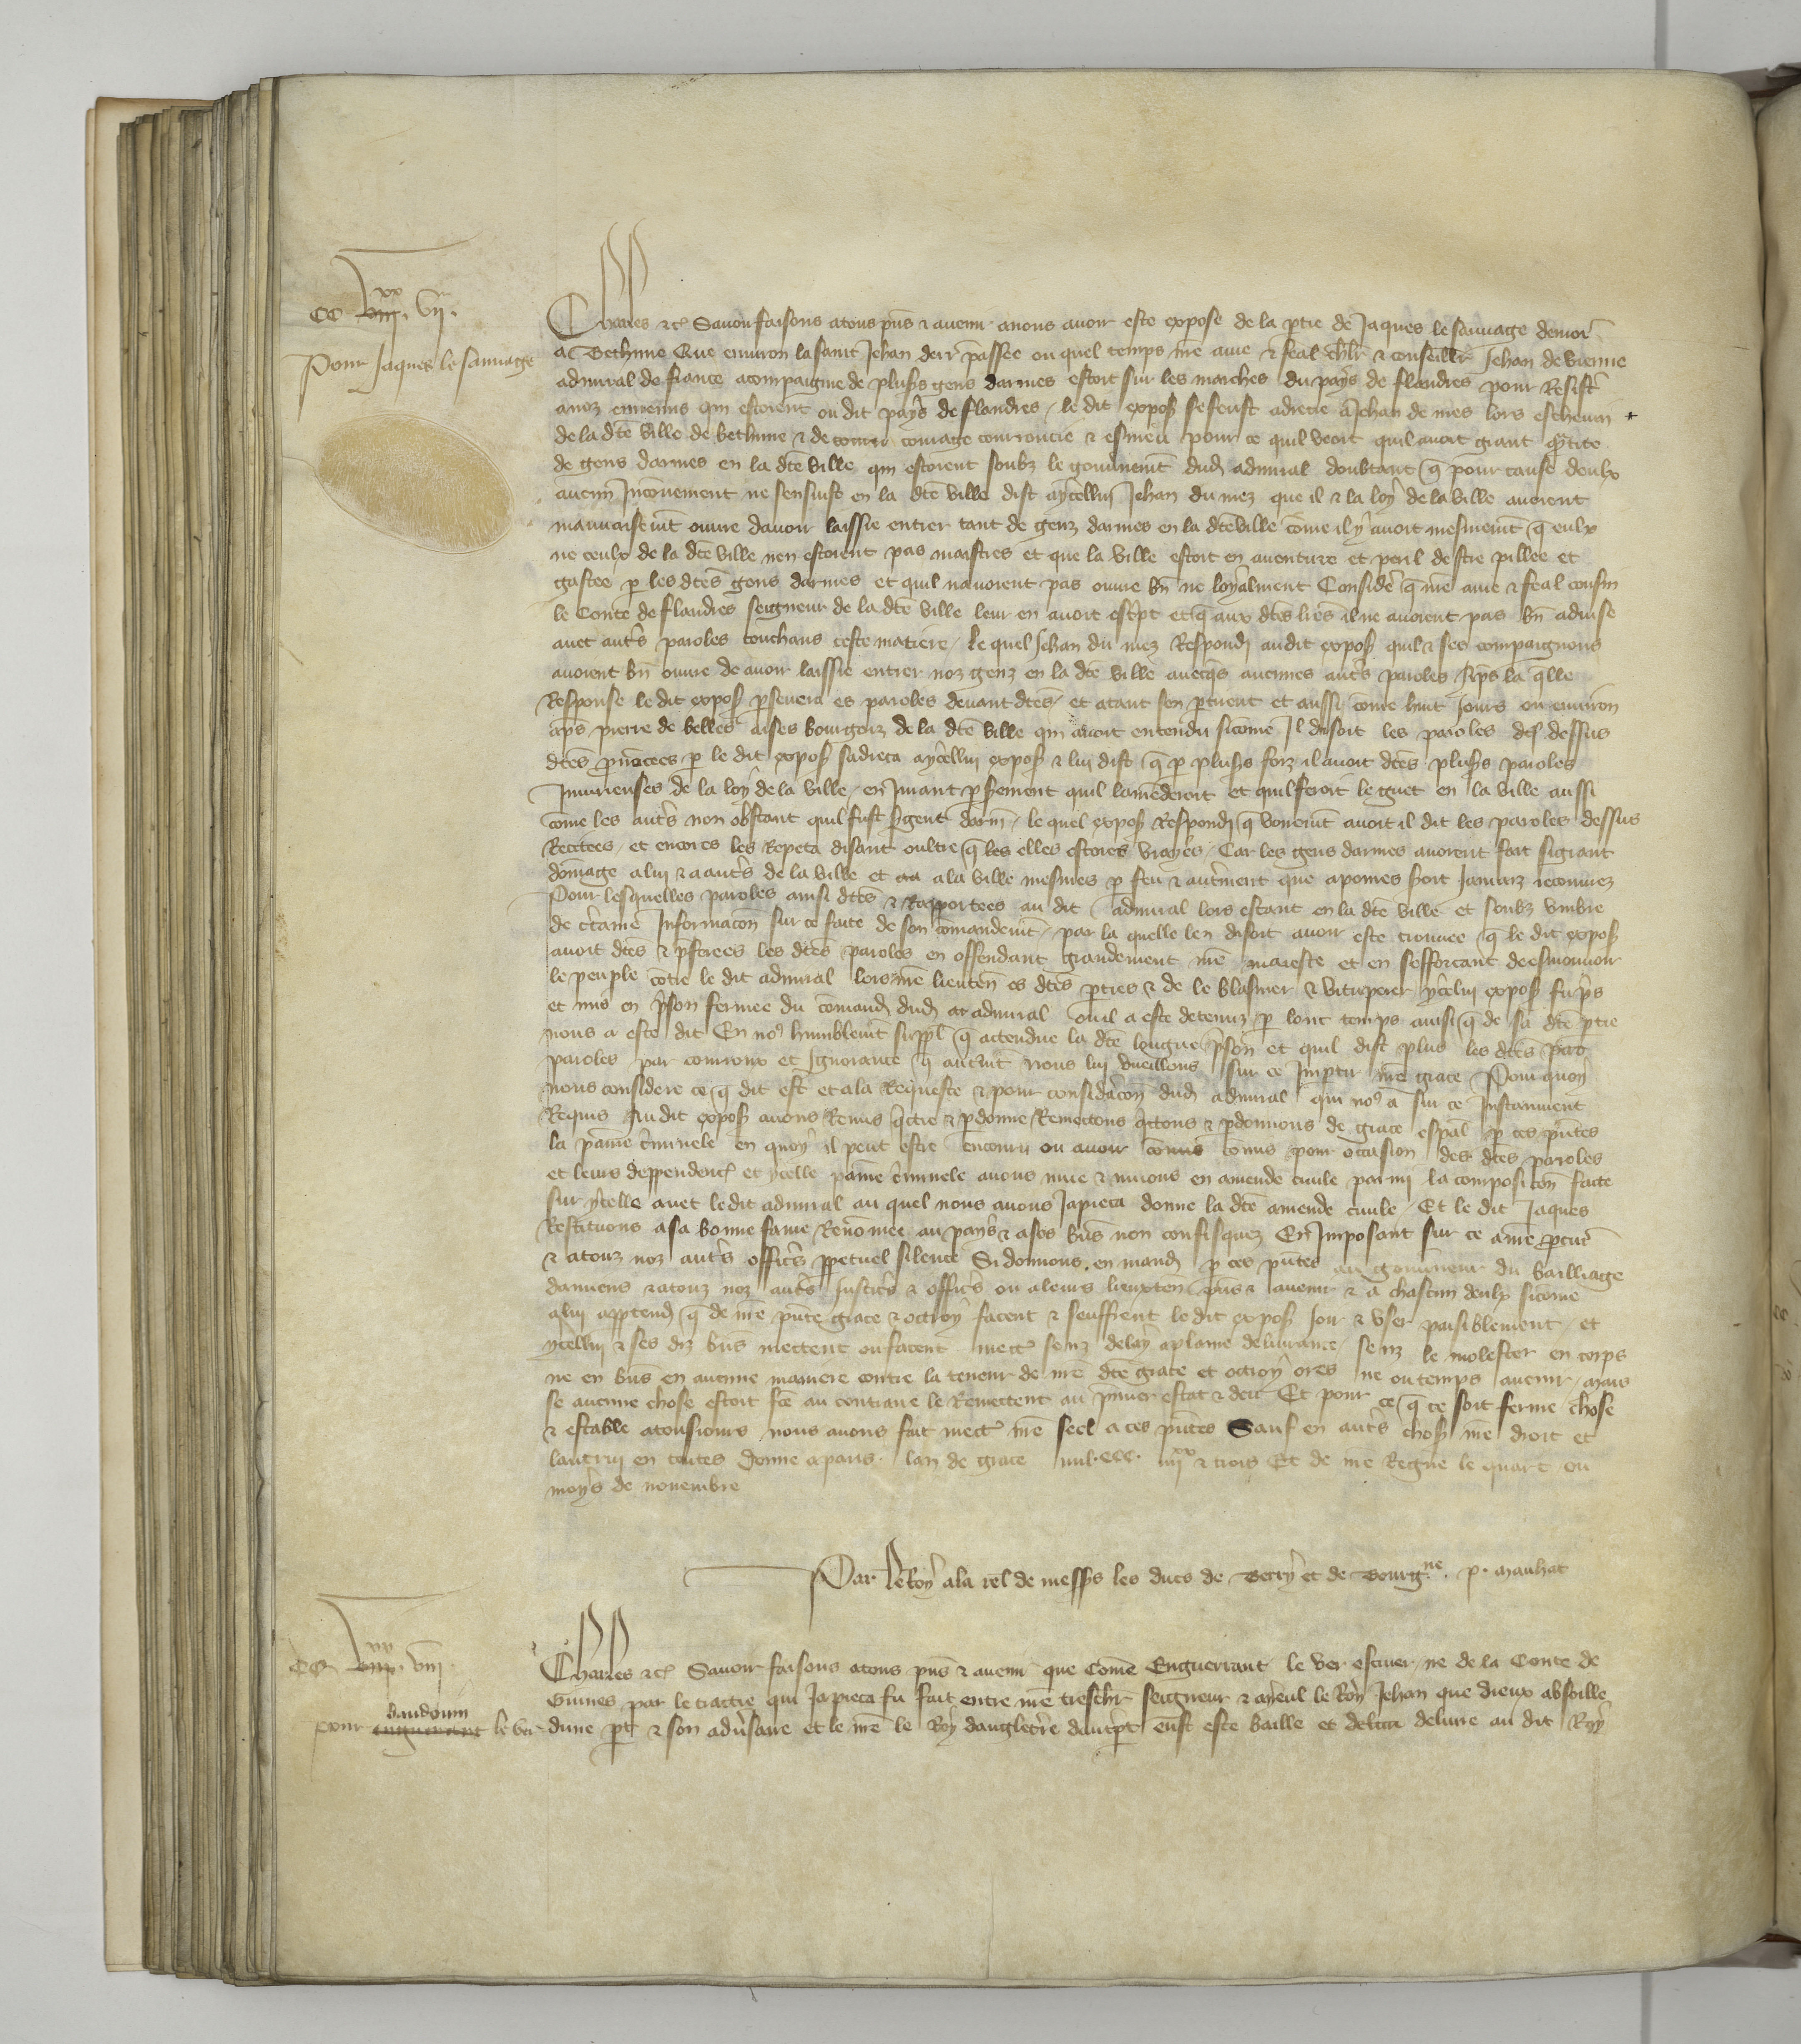 CC iiiixx. vij.
Pour Jaques le sauuage
Charles etc. Sauoir faisons atous pns & auenir anous auoir este expose de la ptie de Jaques le sauuage demor
a Bethune Que enuiron la saint Jehan derr passee ou quel temps nre ame & feal chlr & conseillr Jehan de vienne
admiral de france acompaigne de plusrs gens darmes estoit sur les marches du pays de flandres pour Resistr
anoz ennemis qui estoient ou dit pays de flandres / le dit expos se feust adrecie a Jehan de mes lors escheuin
de la dte ville de bethune & de courage courroucie & esmeu pour ce quil veoit quil auoit grant qtite
de gens darmes en la dte ville qui estoient soubz le gouunemt dud admiral doubtant q pour cause deulx
aucun Inconuenient ne sensuist en la dte ville dist aycellui Jehan du mez que il & la loy de la ville auoient
mauuaisemt ouure dauoir laissie entrer tant de genz darmes en la dte ville come il y auoit mesmemt q eulx
ne ceulx de la dte ville nen estoient pas maistres et que la ville estoit en auenture et peril destre pillee et
gastee p les dtes gens darmes et quil nauoient pas ouure bn ne loyalment Considere q nre ame & feal cousin
le Conte de flandres seigneur de la dte ville leur en auoit escpt et q aux dtes lres il ne auoient pas bn aduise
auec autrs paroles touchans ceste matiere / le quel Jehan du mez Respondi audit expos quil & ses compaignons
auoient bn ouure de auoir laissie entrer noz genz en la dte ville auecqs aucunes autrs paroles Aps la qlle
Response le dit expos pseuera es paroles deuant dtes / et atant sen ptirent et aussi come huit Jours ou enuiron
aps pierre de belles aises bourgois de la dte ville qui auoit entendu sicome Il disoit les paroles dessus
dtes pnoncees p le dit expos sadreca aycellui expos & lui dist q p plusrs foiz il auoit dtes plusrs paroles
Iniurieuses de la loy de la ville / en Jurant psement quil lamenderoit et quil feroit le guet en la ville aussi
come les autrs non obstant quil fust sgent darm / le quel expos Respondi q voirement auoit il dit les paroles dessus
Recitees / et encores les Repeta disant oultre q les elles estoiet vrayes / Car les gens darmes auoient fait si grant
domage a lui & a autrs de la ville et a la ville mesmes p feu & autrment que apoines soit Jamais recouurez
Pour lesquelles paroles ainsi dtes & Rapportees au dit admiral lors estant en la dte ville et soubz vmbre
de ctaine Informacon sur ce faite de son comandemt / par la quelle len disoit auoir este trouuee q le dit expos
auoit dtes & pferees les dtes paroles en offendant grandement nre maieste et en sefforcant de esmouuoir
le peuple cotre le dit admiral lors nre lieuten es dtes pties & de le blasmer & vituperer ycelui expos fu pris
et mis en pson fermee du comand dud admiral ou il a este detenuz p lonc temps ainsi q de sa dte ptie
nous a este dit En nos humblemt suppl q actendue la dte longue pson et quil dist plus les dtes
paroles par courroux et Ignorance q autmt nous lui vueillons sur ce Impartir nre grace Pour quoy
nous considere ce q dit est et ala Requeste & pour consideracon dud admiral qui nos a sur ce Instamment
Requis Audit expos auons Remis qcte & pdonne Remectons qctons & pdonnons de grace espal p ces pntes
la paine criminele en quoy il peut estre encouru ou auoir comis pour occasion des dtes paroles
et leurs deppendenc et ycelle paine criminele auons muee & muons en amende ciuile parmi la composicon faite
sur ycelle auec le dit admiral au quel nous auons Japieca donne la dte amende ciuile / Et le dit Jaques
Restituons a sa bonne fame Renomee au pays & ases bns non confisquez En Imposant sur ce anre pcur
& atouz noz autrs officrs ppetuel silence Si donnons en mand p ces pntes au gouuneur du bailliage
damiens & atouz noz autrs Justicrs & officrs ou aleurs lieuxten pns & auenir & a chascun deulx sicome
alui apptend q de nre pnte grace & octroy facent & seuffrent le dit expos Joir & vser paisiblement / et
ycellui & ses diz bns mectent ou facent mectr senz delay aplaine deliurance / senz le molester en corps
ne en bns en aucune maniere contre la teneur de nre dte grace et octroy ores ne ou temps auenir / mais
se aucune chose estoit fce au contraire le Remectent au pmier estat & deu Et pour ce q ce soit ferme chose
& estable atousiours nous auons fait mectr nre seel a ces pntes Sauf en autrs chos nre droit et
lautrui en toutes Donne a paris lan de grace mil. ccc. iiiixx & trois Et de nre Regne le quart ou
moys de nouembre
Par le Roy ala rel de messrs les ducs de Berry et de Bourgne. p. manhac
CC iiiixx. viij.
Pour baudouin enguerrant le ver
Charles etc. Sauoir faisons atous pns & auenir que Come Enguerrant le ver escuier ne de la Conte de
Guines par le traictie qui Japieca fu fait entre nre treschr seigneur & ayeul le Roy Jehan que dieux absoille
dune pt & son aduersaire et le nre le Roy dangletere dautrept eust este baille et deliure au dit Roy